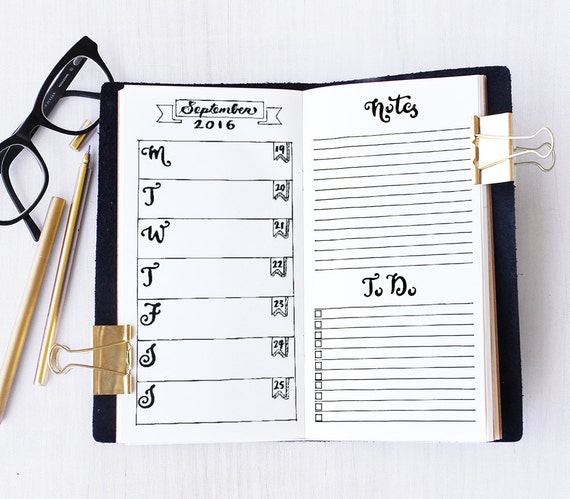 September
2016
M 19
T 20
W 21
T 22
F 23
S 24
S 25
Notes
To Do